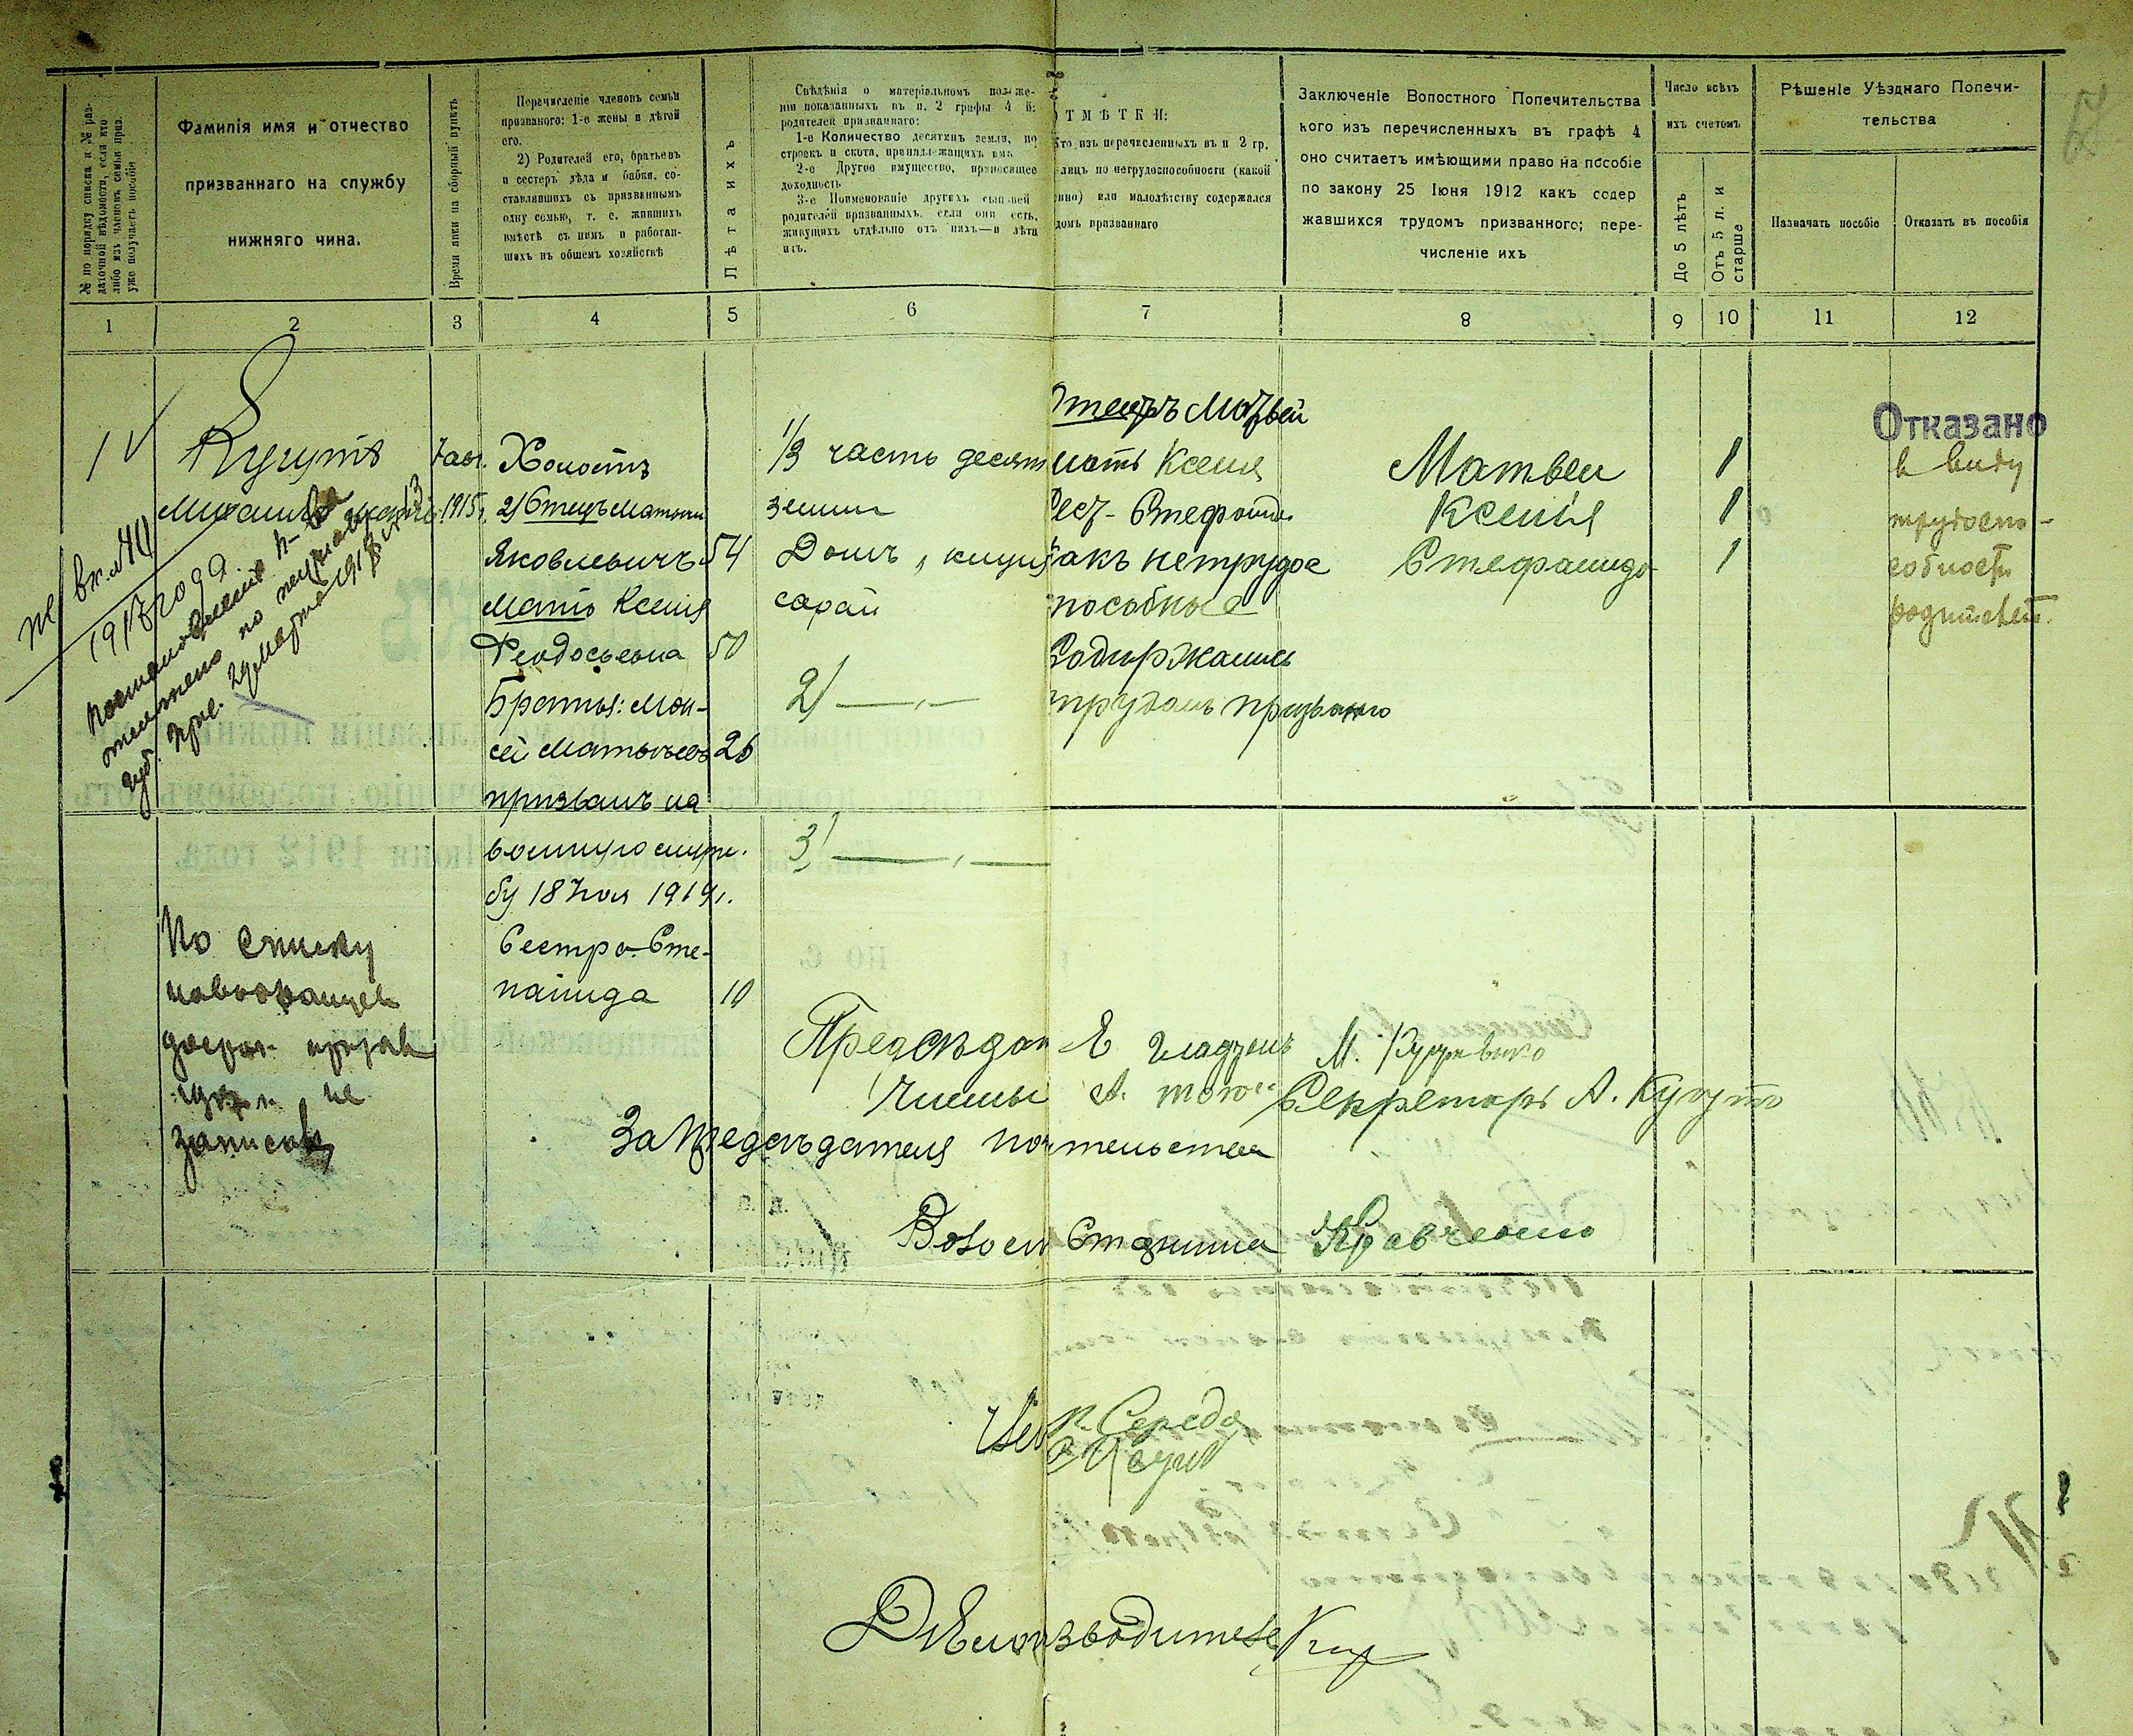 № по порядку списка и №№ раз-
даточной вѣдомости, если кто
либо изъ членовъ семьи приз.
уже получаетъ пособіе
Фамилія имя и отчество
призваннаго на службу
нижняго чина.
Время явки на сборный пунктъ
Перечисленіе членовъ семьи
призванаго: 1-е жены и дѣтей
его.
2) Родителей его, братьевъ
и сестеръ дѣда и бабки, со-
ставлявшихъ съ призваннымъ
одну семью, т. е. жившихъ
вмѣстѣ съ нимъ и работав-
шихъ въ общемъ хозяйствѣ
Лѣта ихъ
Свѣдѣнія о матеріальномъ полже-
ніи показанныхъ въ п. 2 графы 4 й:
родителей призваннаго:
1-е Количество десятинъ земли, по
строекъ и скота, принадлежащихъ имъ
2-е Другое имущество, приносящее
доходность
3-е Поименованіе другихъ сыновей
родителей призванныхъ, если они есть,
живущихъ отдѣльно отъ нихъ—и лѣта
ихъ.
ТМѢТКИ:
Кто изъ перечисленныхъ въ п 2 гр.
лицъ по нетрудоспособности (какой
нно) или малолѣтству содержался
домъ призваннаго
Заключеніе Вопостного Попечительства
кого изъ перечисленныхъ въ графѣ 4
оно считаетъ имѣющими право на пособіе
по закону 25 Іюня 1912 какъ содер
жавшихся трудомъ призванного; пере-
численіе ихъ
Число всѣхъ
ихъ счетомъ
До 5 лѣтъ
Отъ 5 л. и
старше
Рѣшеніе Уѣзднаго Попечи-
тельства
Назначать пособіе
Отказать въ пособія
1 2 3 4 5 6 7 8 9 10 11 12
1
Кугутъ
7 авг.
1915г.
Холостъ
2) Отецъ Матвѣй
Яковлевичъ 54
Мать Ксенія
Феодосьевна 50
Братья: Мои-
сей Матвѣевъ 26
призванъ на
военную служ-
бу 18 Іюл 1914г.
Сестра Сте-
панида 10
1/3 часть десят
земли
Домъ, клуня
сарай
2) — „ —
3) — „ —
Отецъ Матвѣй
мать Ксенія
Сест- Стефанида
какъ нетрудос
пособные
Содержались
трудомъ призваного
Матвѣи 1
Ксенія 1
Стефанида 1
Отказано
в виду
трудоспо-
собности
родителей.
1915 года
По списку
новобранцев
досроч. призыв
не
записанъ
Предсѣдат Е Гладушъ
Члены
Секретарь А. Кугутъ
За Предсѣдателя поч тельства
Волосн Старшина Кравченко
П. Середа
Дѣлопроизводитель